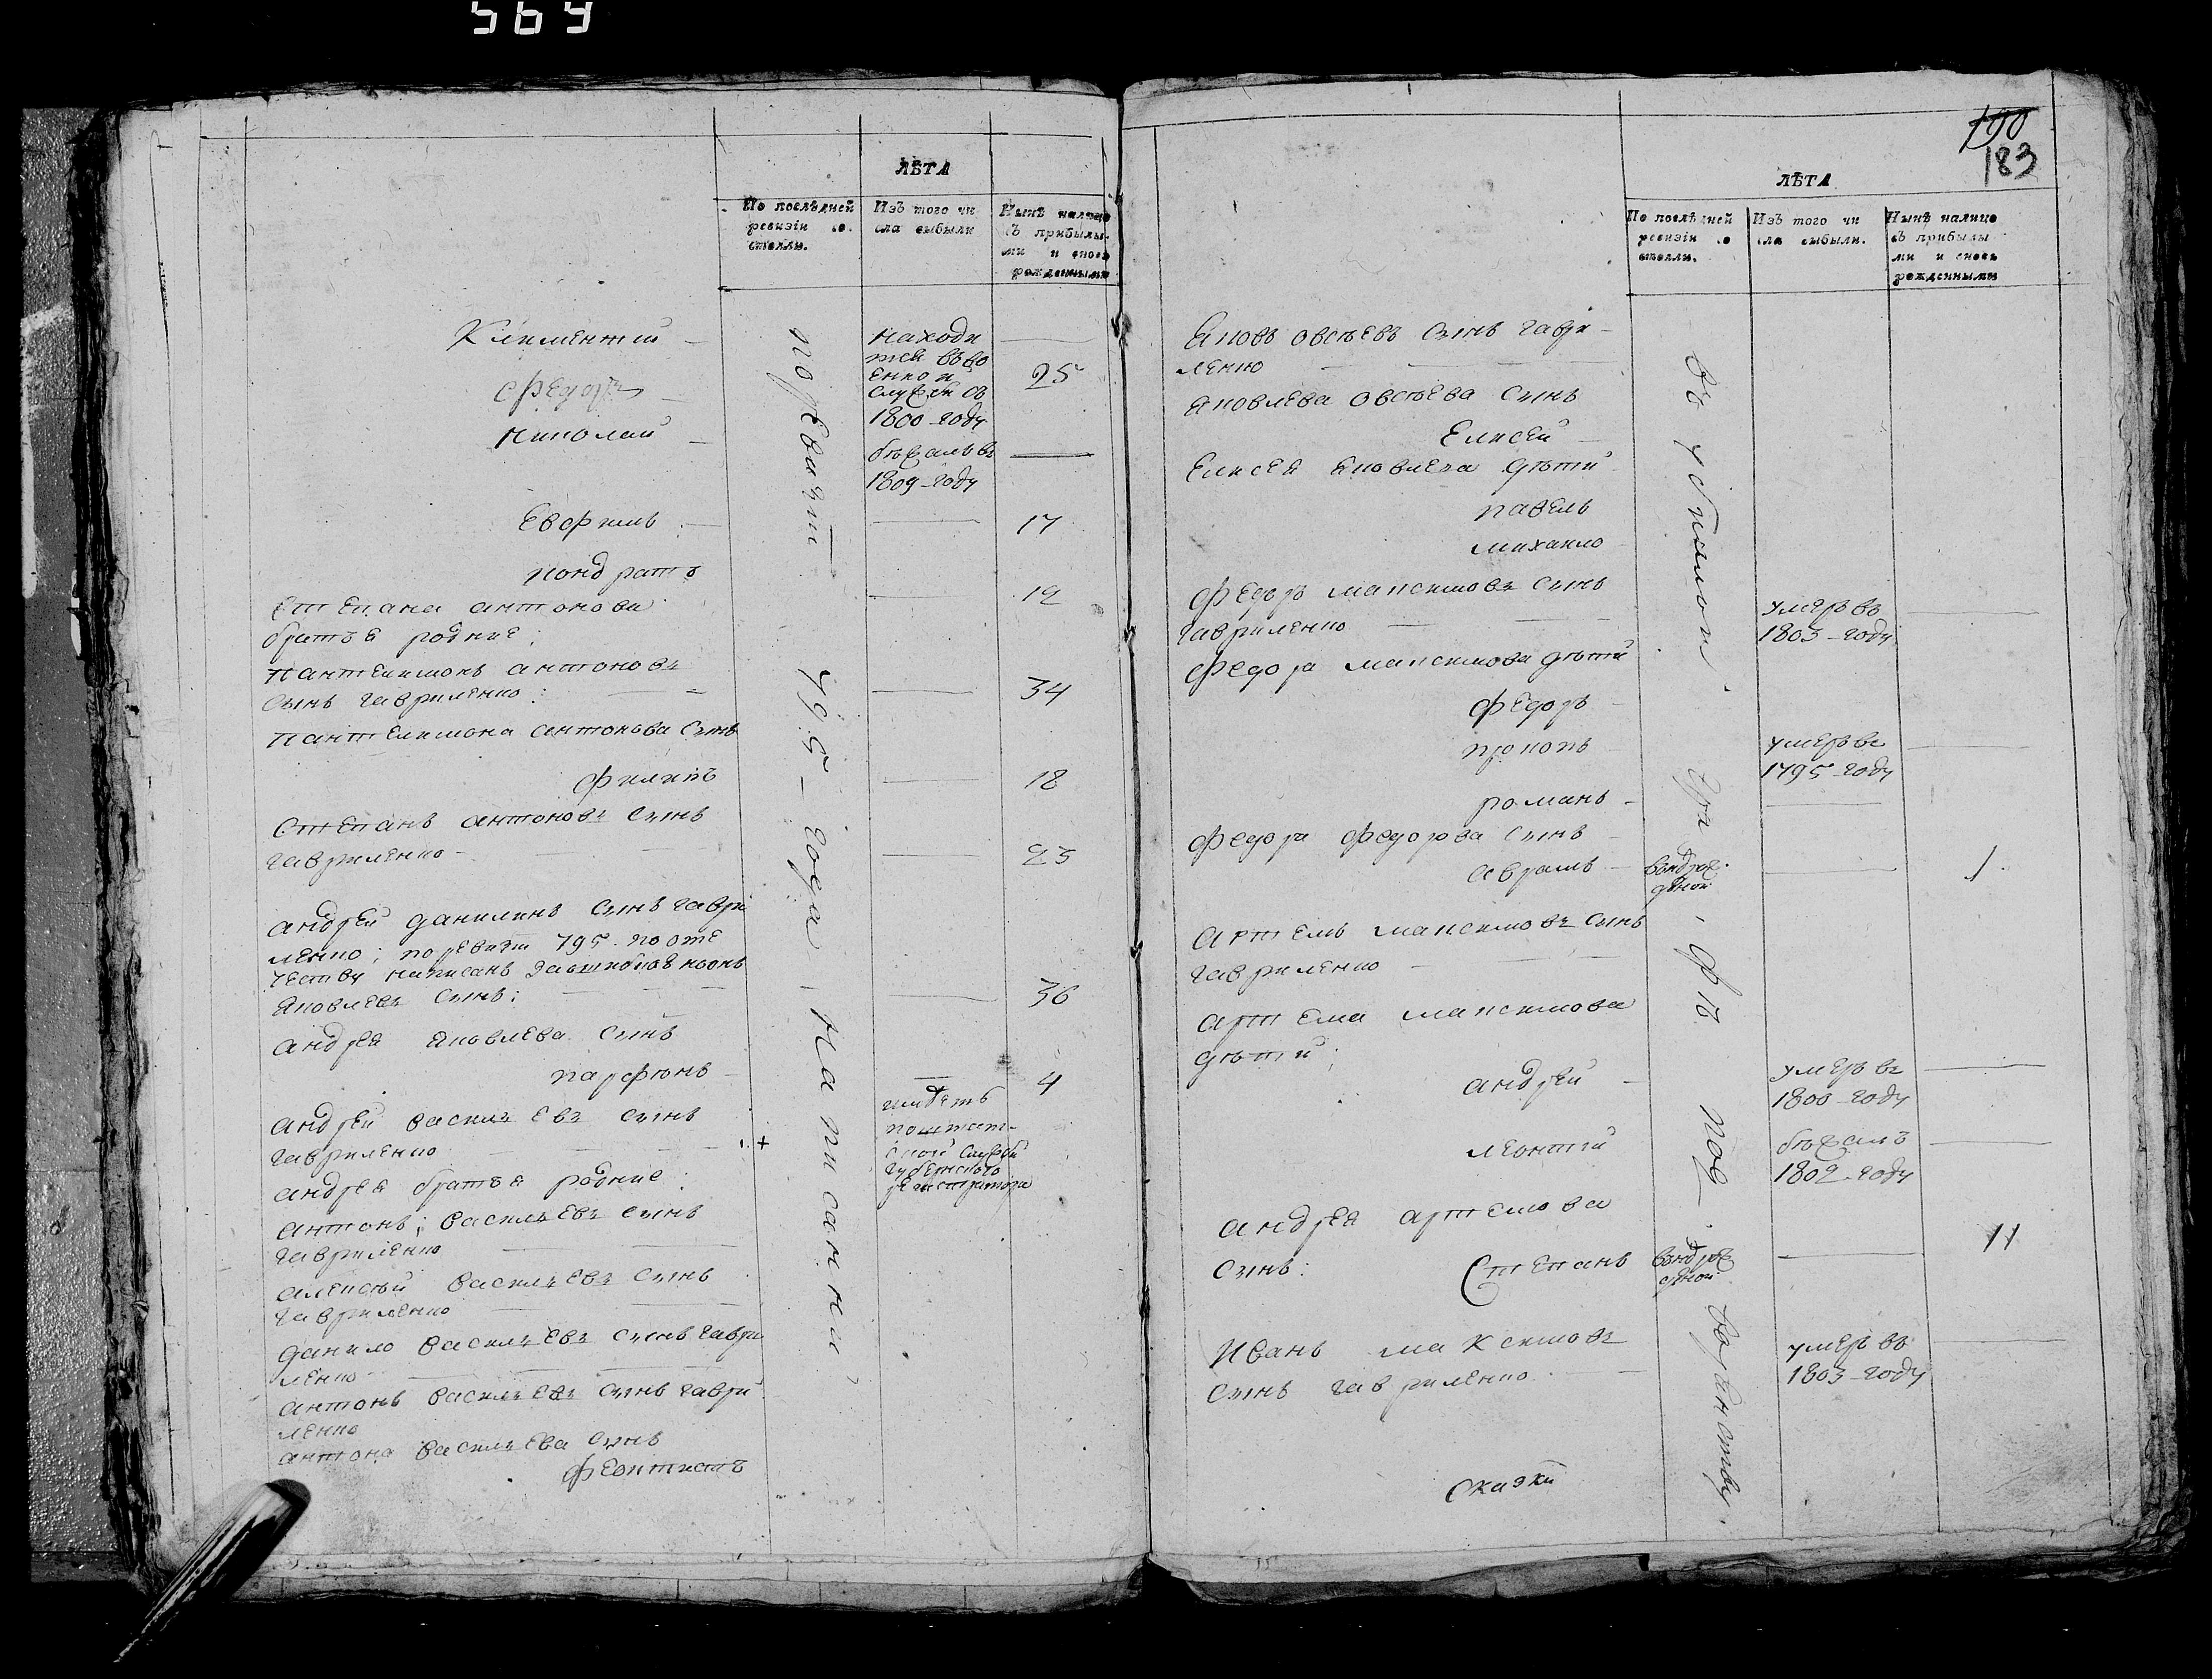 569
ЛѢТА
По послѣдней
ревизіи со
стояли.
Изъ того чи
сла выбыли
Нынѣ налицо
съ прибылы
ми и вновь
рожденными
Климентий
находи
тся въ во
енной
службѣ съ
1800 году
Федоръ
25
Николай
бѣжалъ въ
1809 году
Евфимъ
17
Кондратъ
12
Степана антонова
братья родние:
Пантелимонъ антоновъ
сынъ гавриленко:
34
Пантелимона антонова сынъ
филипъ
18
Степанъ антоновъ сынъ
гавриленко
23
андрей данилинъ сынъ гаври
ленко; поревизи 795. пооте
честву написанъ
яковлевъ сынъ:
36
андрея яковлева сынъ
парфюнъ
4
андрей васильевъ сынъ
гавриленко
+
губернского
регистратора
андрея братья родние:
антонъ; васильевъ сынъ
гавриленко
алексѣй васильевъ сынъ
гавриленко
данило васильевъ сынъ гаври
ленко
антонъ васильевъ сынъ гаври
ленко
антона васильева сынъ
феоктистъ
поревизіи 795 года написанни
190
183
ЛѢТА
По послѣдней
ревизіи со
стояли.
Изъ того чи
сла выбыли.
Нынѣ налицо
съ прибылы
ми и вновь
рожденными
яковъ овсѣевъ сынъ гаври
ленко
яковлева овсѣева сынъ
Елисей
Елисея яковлева дѣти
павелъ
михаило
федоръ максимовъ сынъ
гавриленко
умеръ въ
1803 году
федора максимова дѣти
федоръ
прокопъ
умеръ въ
1795 году
романъ
федора федорова сынъ
аврамъ
1
артемъ максимовъ сынъ
гавриленко
артема максимова
дѣти:
андрей
умеръ въ
1800 году
леонтий
бѣжалъ
1802 году
андрея артемова
сынъ: Степанъ
11
Иванъ максимовъ
сынъ гавриленко
умеръ въ
1803 году
сказки